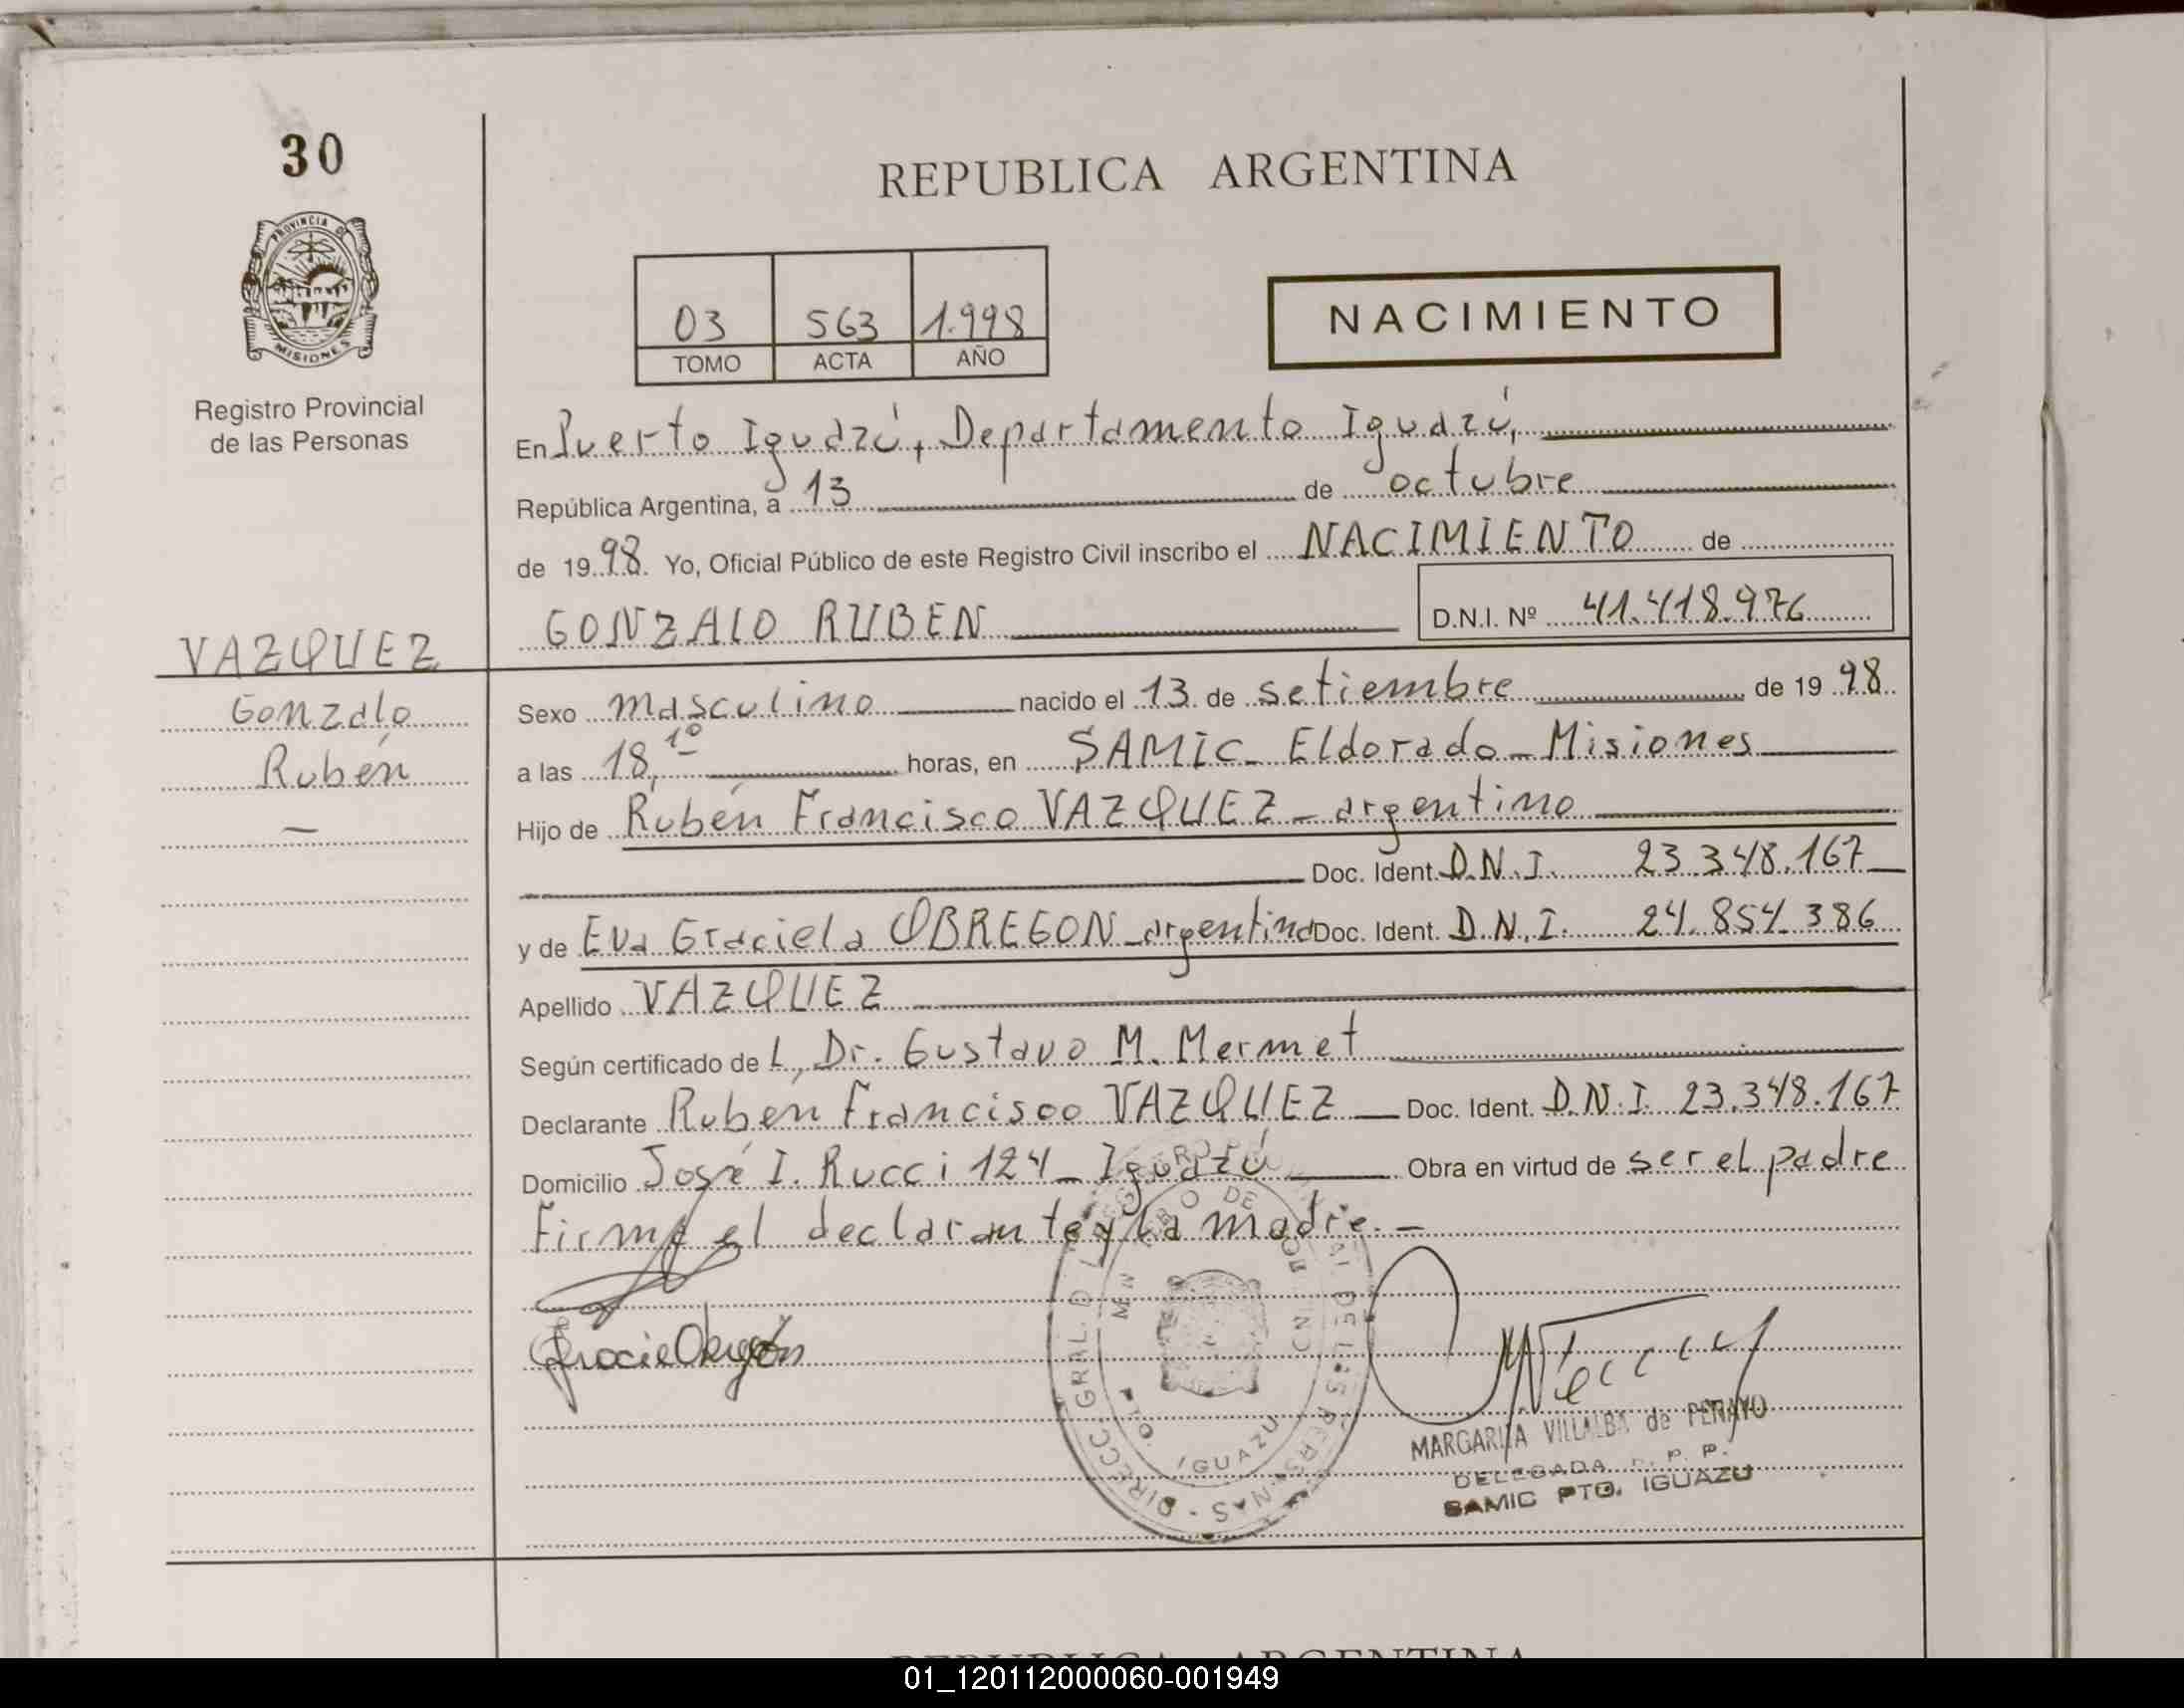 30
PROVINCIA DE
MISIONES
Registro Provincial
de las Personas
REPUBLICA ARGENTINA
03 563 1.998
TOMO ACTA AÑO
NACIMIENTO
En Puerto Iguazú, Departamento Iguazú,
República Argentina, a 13 de octubre
de 1998. Yo, Oficial Público de este Registro Civil inscribo el NACIMIENTO de
GONZALO RUBEN D.N.I. Nº 41.418.976
VAZQUEZ
Gonzalo
Rubén
Sexo masculino nacido el 13 de setiembre de 1998
a las 18,10 horas, en SAMIC - Eldorado - Misiones
Hijo de Rubén Francisco VAZQUEZ - argentino
Doc. Ident. D.N.I. 23.348.167
y de Eva Graciela OBREGON - argentina Doc. Ident. D.N.I. 24.854.386
Apellido VAZQUEZ
Según certificado de L, Dr. Gustavo M. Mermet
Declarante Rubén Francisco VAZQUEZ Doc. Ident. D.N.I. 23.348.167
Domicilio José I. Rucci 124 - Iguazú Obra en virtud de ser el padre
Firma el declarante y la madre. -
IGUAZU
MARGARITA VILLALBA de PENAYO
DELEGADA R. P. P.
SAMIC PTO. IGUAZU
REPUBLICA ARGENTINA
01_120112000060-001949